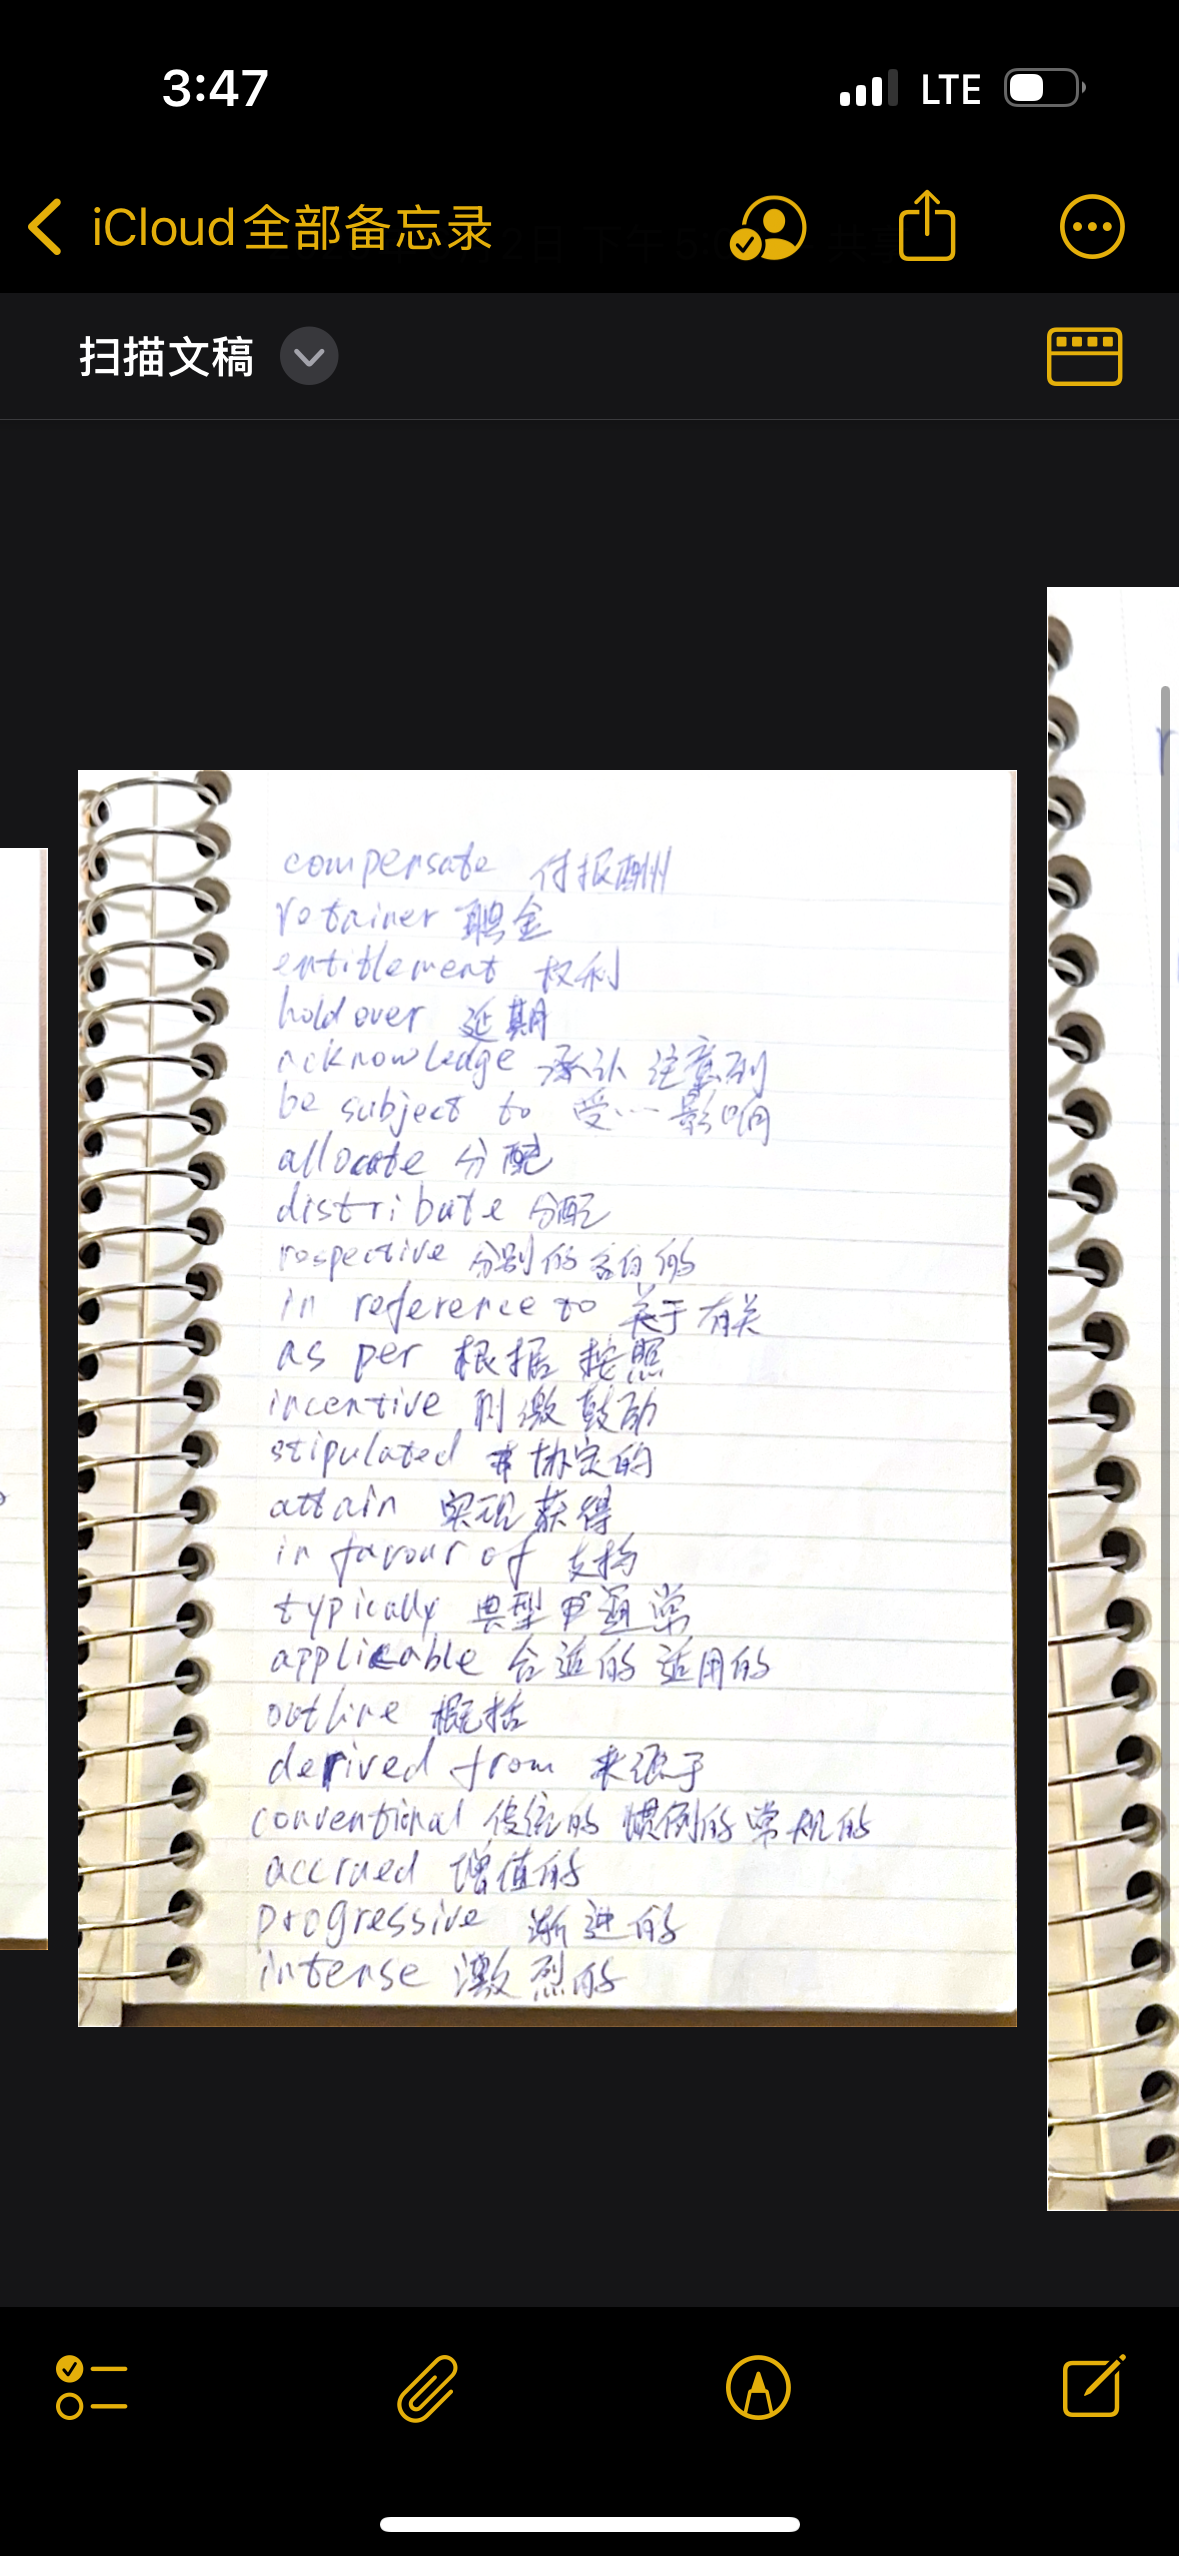 3:47 LTE
iCloud全部备忘录
扫描文稿
compensate 付报酬
retainer 聘金
entitlement 权利
hold over 延期
acknowledge 承认 注意到
be subject to 受…影响
allocate 分配
distribute 分配
respective 分别的 各自的
in reference to 关于 有关
as per 根据 按照
incentive 刺激 鼓励
stipulated 协定的
attain 实现 获得
in favour of 支持
typically 典型 通常
applicable 合适的 适用的
outline 概括
derived from 来源于
conventional 传统的 惯例的 常规的
accrued 增值的
progressive 渐进的
intense 激烈的